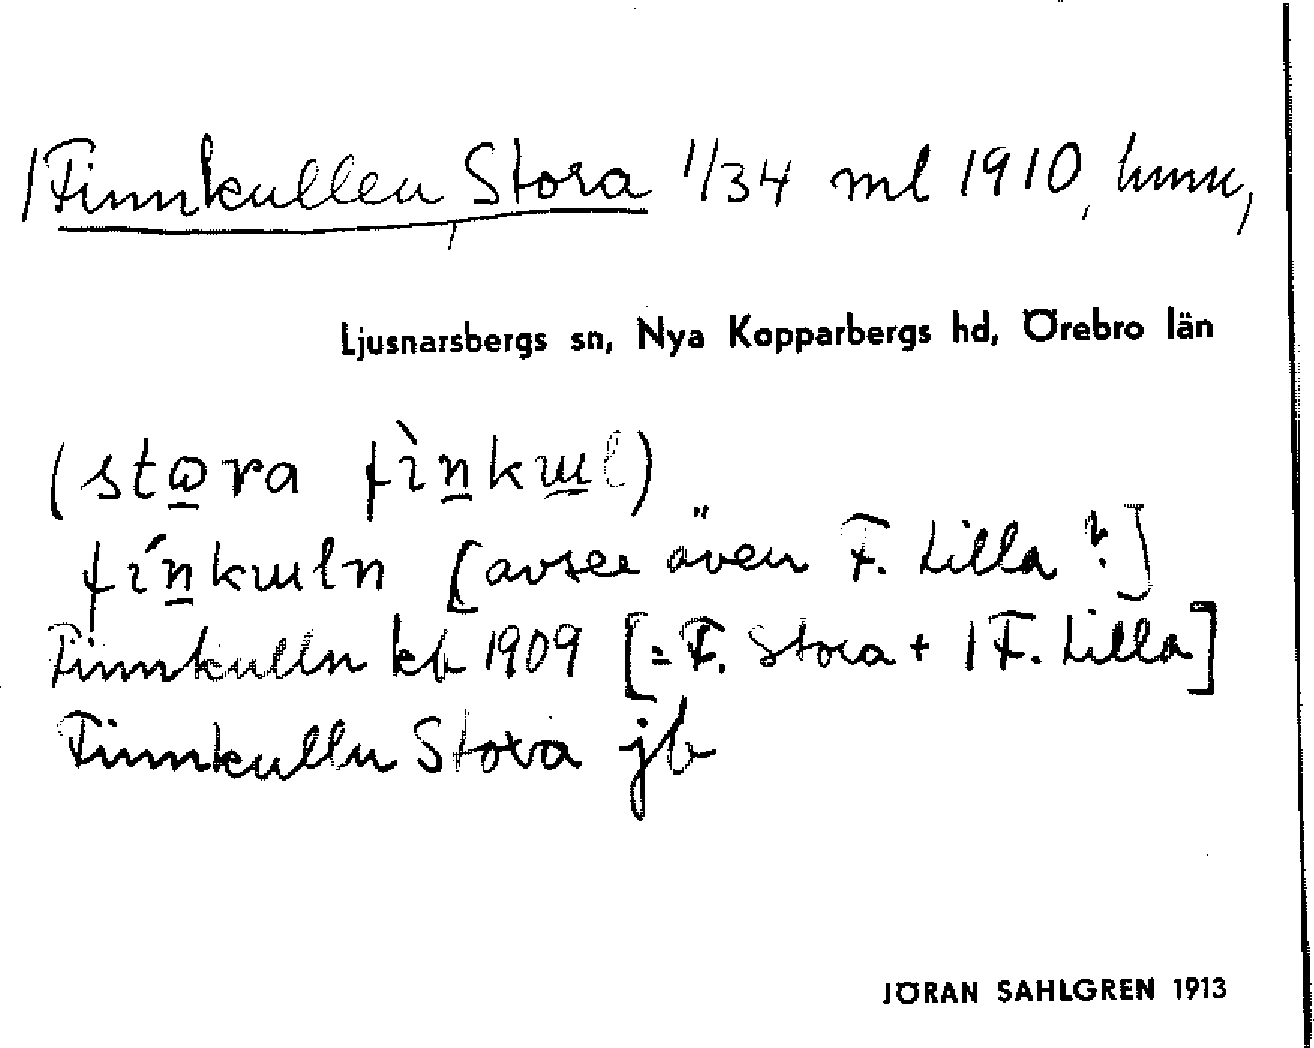 /Finnkullen, Stora 1/34 ml 1910, hmn,
Ljusnarsbergs sn, Nya Kopparbergs hd, Örebro län
(stωra fìnkɯl)
fínkɯln [avser även F. Lilla?]
Finnkulln kb 1909 [= F. Stora + /F. Lilla]
Finnkulln Stora jb
JÖRAN SAHLGREN 1913